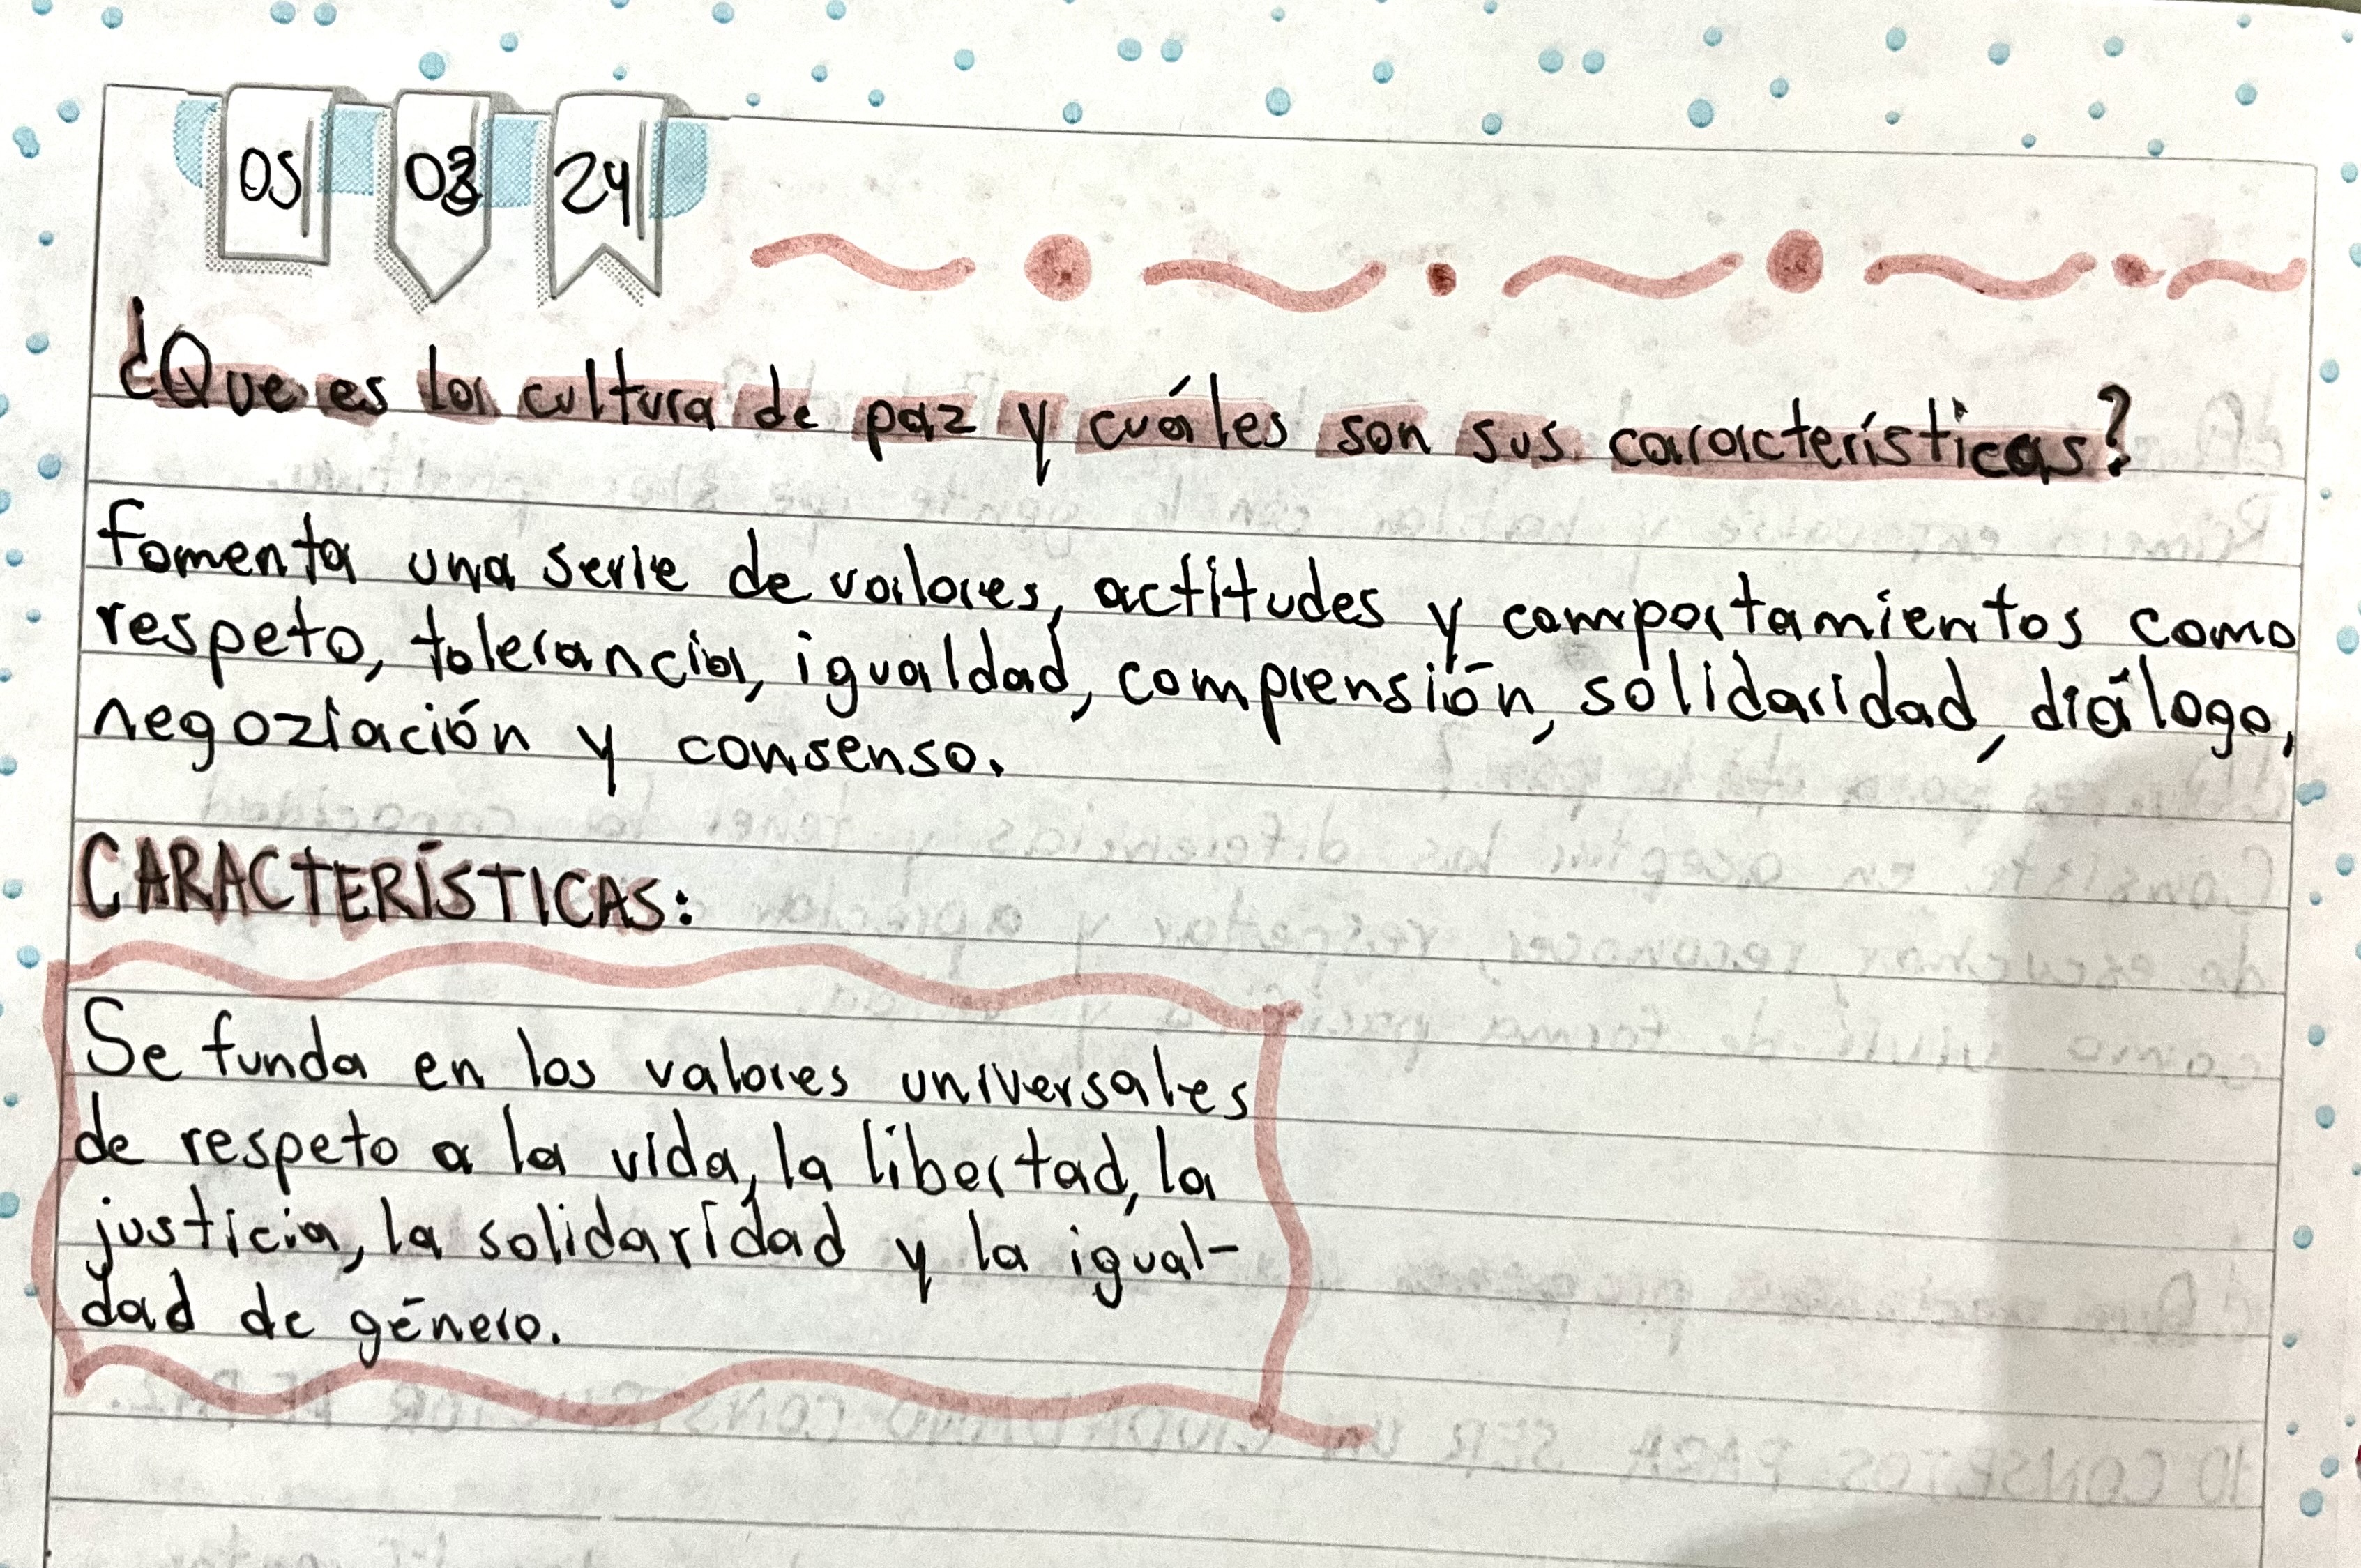 05 03 24
¿Que es la cultura de paz y cuáles son sus características?
fomenta una serie de valores, actitudes y comportamientos como
respeto, tolerancia, igualdad, comprensión, solidaridad, diálogo,
negoziación y consenso.
CARACTERÍSTICAS:
Se funda en los valores universales
de respeto a la vida, la libertad, la
justicia, la solidaridad y la igual-
dad de género.